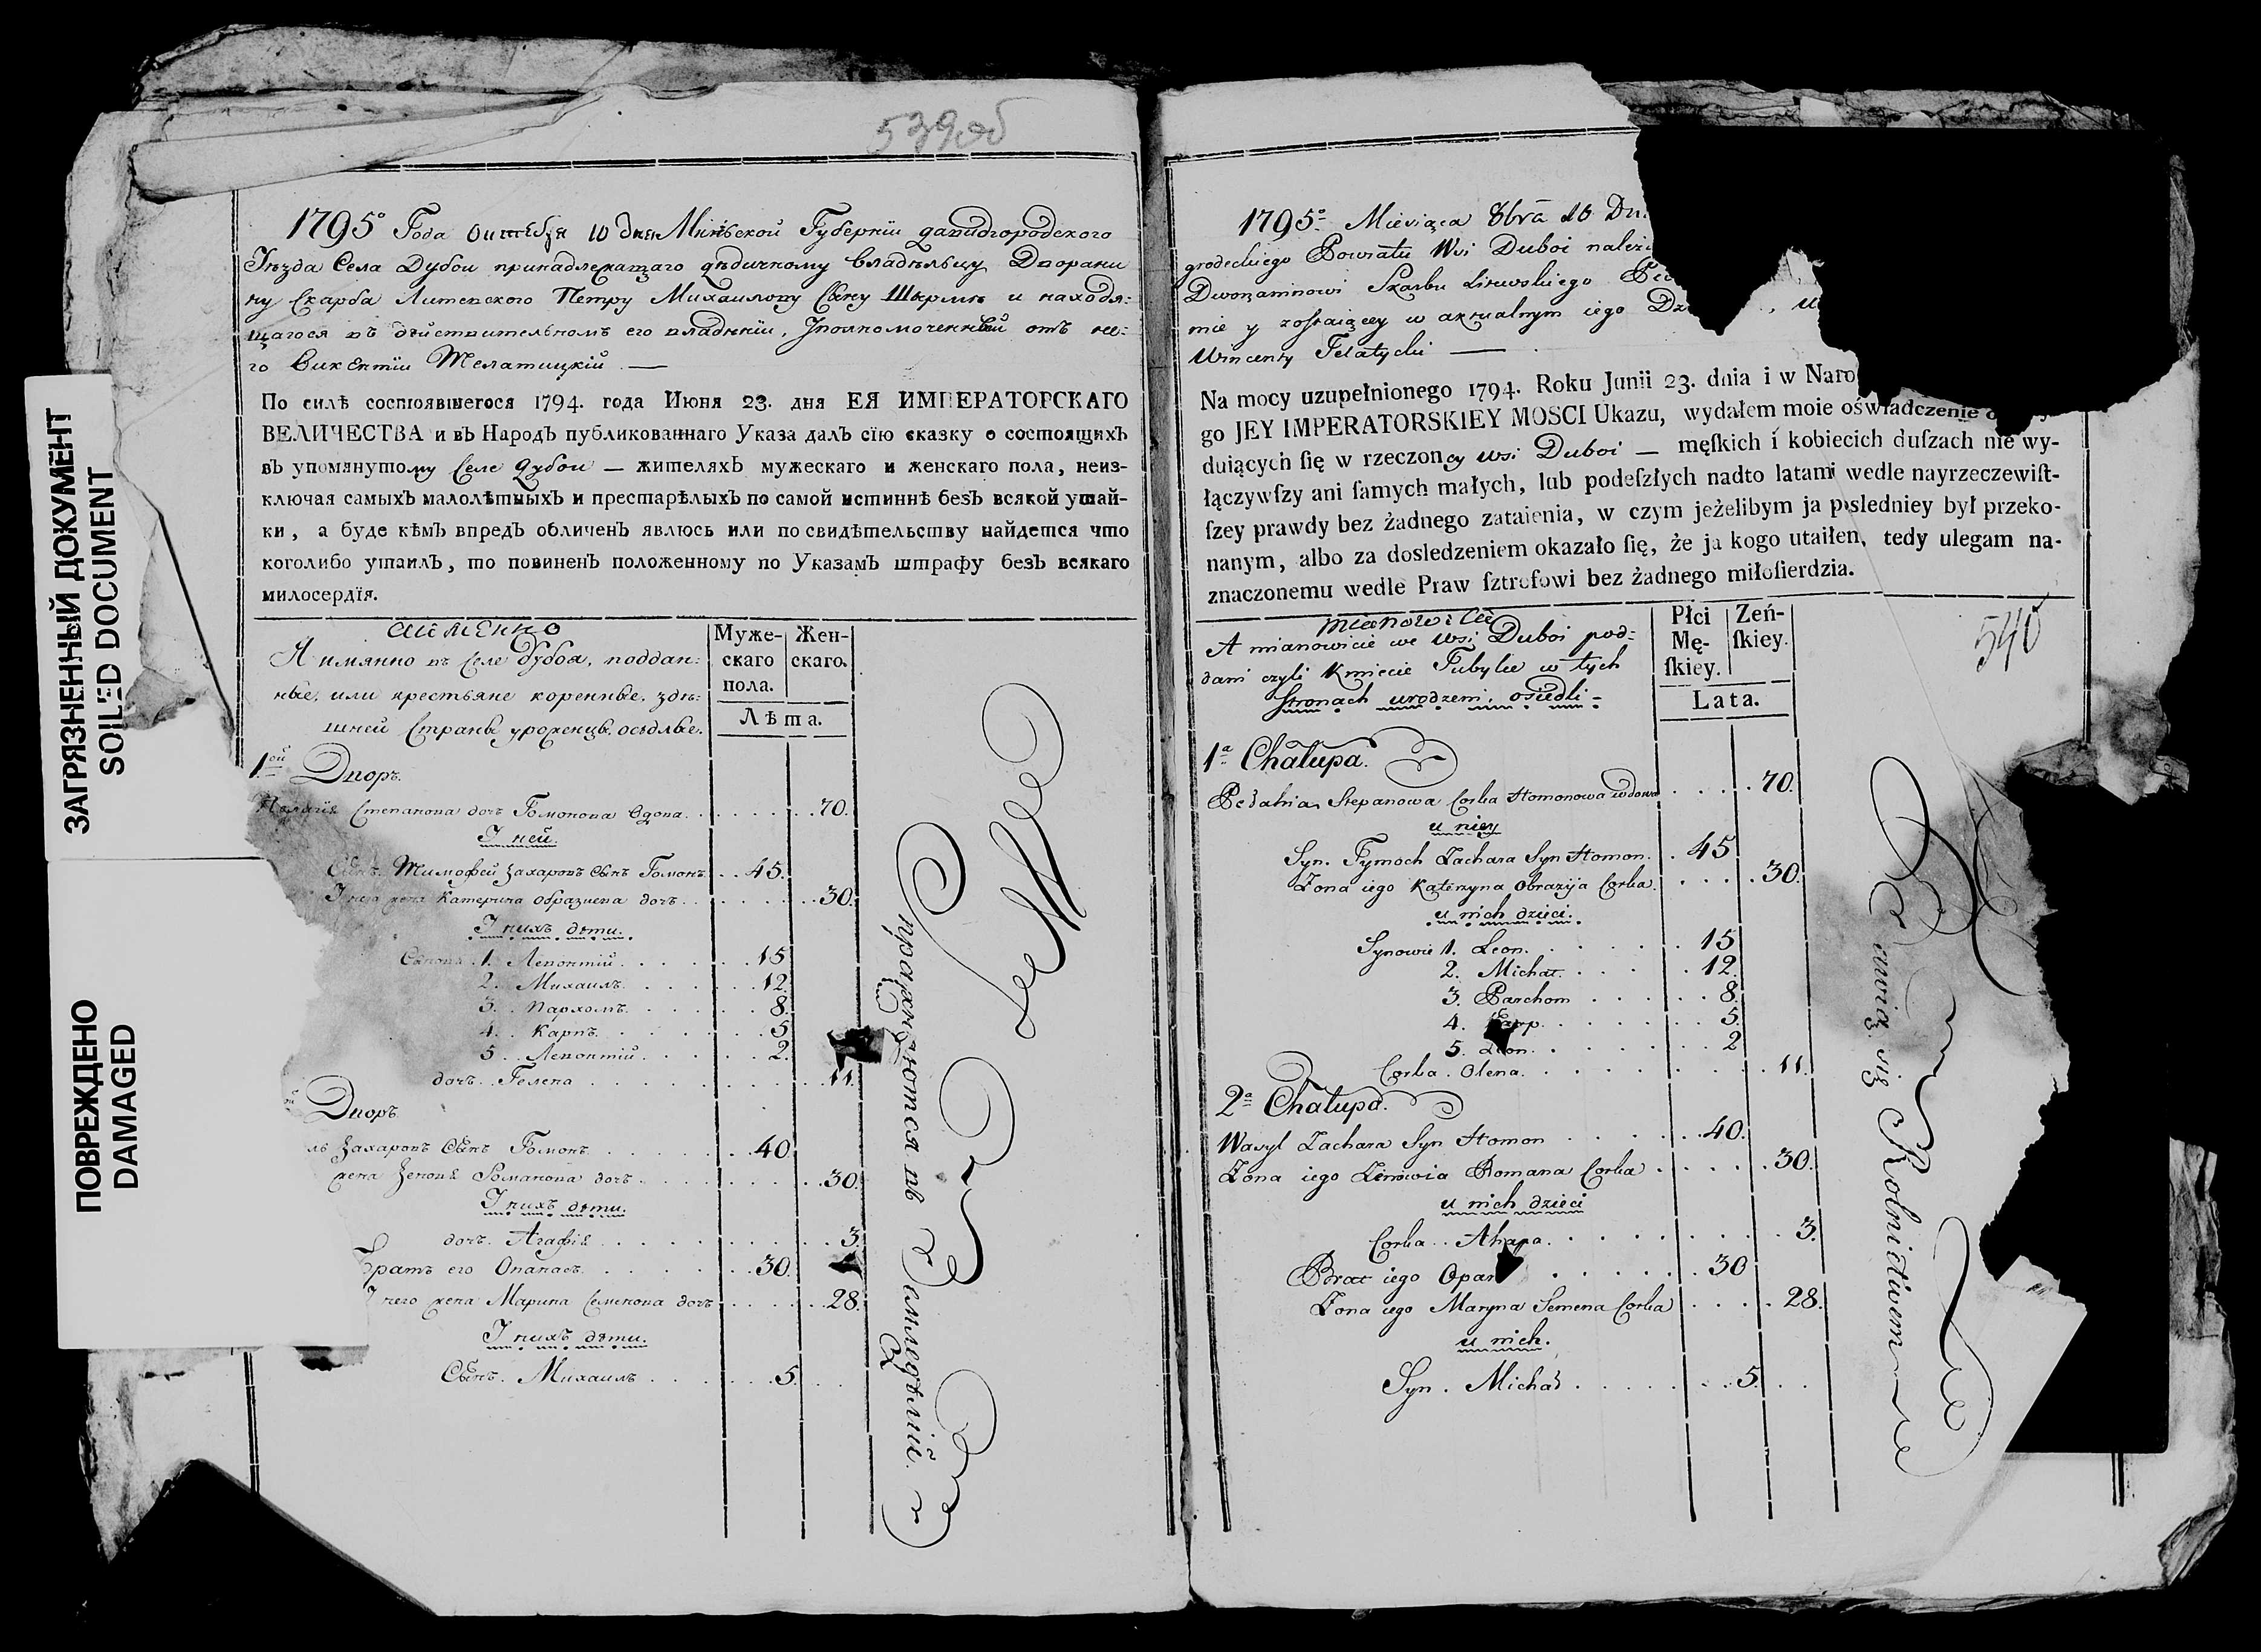 ЗАГРЯЗНЕННЫЙ ДОКУМЕНТ
SOILED DOCUMENT
ПОВРЕЖДЕНО
DAMAGED
539об
1795º Года Октебря 10 дня Миньской Губернїи давидгородского
Уѣзда Села Дубои принадлежащаго дѣдичному владѣльцу Дворани
ну Скарба Литевского Петру Михаилову Сыну Ширмѣ и находя:
щагося въ дѣйствительномъ его владѣнїи, Уполномоченный отъ не:
го Викентїи Телатицкїй —
По силѣ состоявшегося 1794. года Июня 23. дня ЕЯ ИМПЕРАТОРСКАГО
ВЕЛИЧЕСТВА и въ Народъ публикованнаго Указа далъ сїю сказку о состоящихъ
въ упомянутому Селе Дубои — жителяхъ мужескаго и женскаго пола, неиз-
ключая самыхъ малолѣтныхъ и престарѣлыхъ по самой истиннѣ безъ всякой утай-
ки, а буде кѣмъ впредъ обличенъ явлюсь или по свидѣтельству найдется что
коголибо утаилъ, то повиненъ положенному по Указамъ штрафу безъ всякаго
милосердїя.
именно
А имянно въ Селе Дубоя, поддан:
ные, или крестьяне коренные, здѣ:
шней Страны уроженцы, осѣдлые.
Муже-
скаго
пола.
Жен-
скаго.
Лѣта.
1ой Дворъ.
Степанова дочь Гомонова Вдова . . . 70.
У ней.
Сынъ. Тимофей Захаровъ Сынъ Гомонъ . . 45.
У него жена Катерина Образиева дочь . . . 30.
У нихъ дѣти.
Сыновя .1. Левонтїй . . . 15
2. Михаилъ . . . 12.
3. Пархомъ . . . 8.
4. Карпъ . . . 5
5. Левонтїй . . . 2.
дочь. Гелена . . . 11.
Дворъ.
ль Захаровъ Сынъ Гомонъ . . . 40
жена Зеновя Романова дочь . . . 30.
У нихъ дѣти.
дочь. Агафїя . . . 3
Братъ его Опанасъ . . . 30.
У него жена Марина Семенова дочь . . . 28.
У нихъ дѣти.
Сынъ. Михаилъ . . . 5.
упражняются въ Земледѣлїй.
1795º Miesiąca 8bra 10 Dn
grodeckiego Powiatu Wsi Duboi należ
Dworzaninowi Skarbu Litewskiego
mie y zostaiącey w aktualnym iego Dz
Wincenty Telatycki —
Na mocy uzupełnionego 1794. Roku Junii 23. dnia i w Naro
go JEY IMPERATORSKIEY MOSCI Ukazu, wydałem moie oświadczenie
duiących ſię w rzeczoney wsi Duboi — męſkich i kobiecich duſzach nie wy-
łączywſzy ani ſamych małych, lub podeſzłych nadto latami wedle nayrzeczewiſt-
ſzey prawdy bez żadnego zataienia, w czym jeżelibym ja posledniey był przeko-
nanym, albo za dosledzeniem okazało ſię, że ja kogo utaiłen, tedy ulegam na-
znaczonemu wedle Praw ſztrofowi bez żadnego miłoſierdzia.
mianowicie
A mianowicie we Wsi Duboi pod:
dani czyli Kmiecie Tubylce w tych
stronach urodzeni, osiedli -
Płci
Mę-
ſkiey.
Zeń-
ſkiey.
Lata.
540
1ª Chałupa.
Stepanowa Corka Homonowa wdowa . . . 70.
u niey
Syn. Tymoch Zachara Syn Homon . . 45
Zona iego Katerzyna Obrazija Corka . . . 30.
u nich dzieci.
Synowie 1. Leon . . . 15
2. Michał . . . 12.
3. Parchom . . . 8.
4. Karp . . . 5.
5. Leon . . . 2
Corka . Olena . . . 11.
2ª Chałupa.
Wasyl Zachara Syn Homon . . . 40.
Zona iego Zinowia Romana Corka . . . 30.
u nich dzieci
Corka . . Ahapa . . . 3.
Brat iego Opan . . . 30
Zona iego Maryna Semena Corka . . . 28.
u nich.
Syn . Michał . . . 5.
Bawią się Rolnictwem